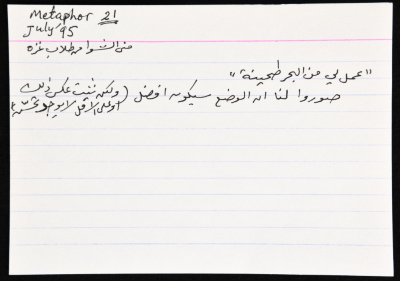 Metaphor 21
July '95
منى الشوا من طلاب غزه
"عمل لي من البحر طحينة"
صوروا لنا ان الوضع سيكون افضل (ولكن ثبت عكس ذلك
او على الاقل لا يوجد تحسّن)